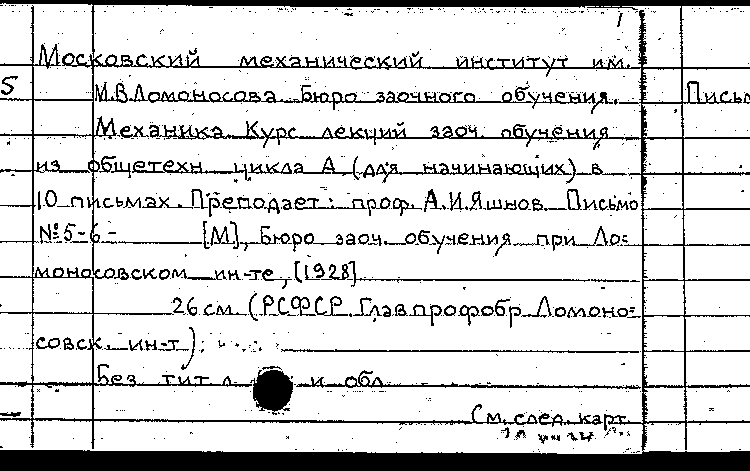 1
Московский механический институт им.
5 М.В.Ломоносова. Бюро заочного обучения. Письм
Механика. Курс лекций заоч. обучения
из общетехн. цикла А (для начинающих) в
10 письмах. Преподает: проф. А.И.Яшнов. Письмо
№5-6- [М], Бюро заоч. обучения при Ло=
моносовском ин-те, [1928]
26 см. (РСФСР. Главпрофобр. Ломоно=
совск. ин-т).
Без тит. л. и обл.
См. след. карт.